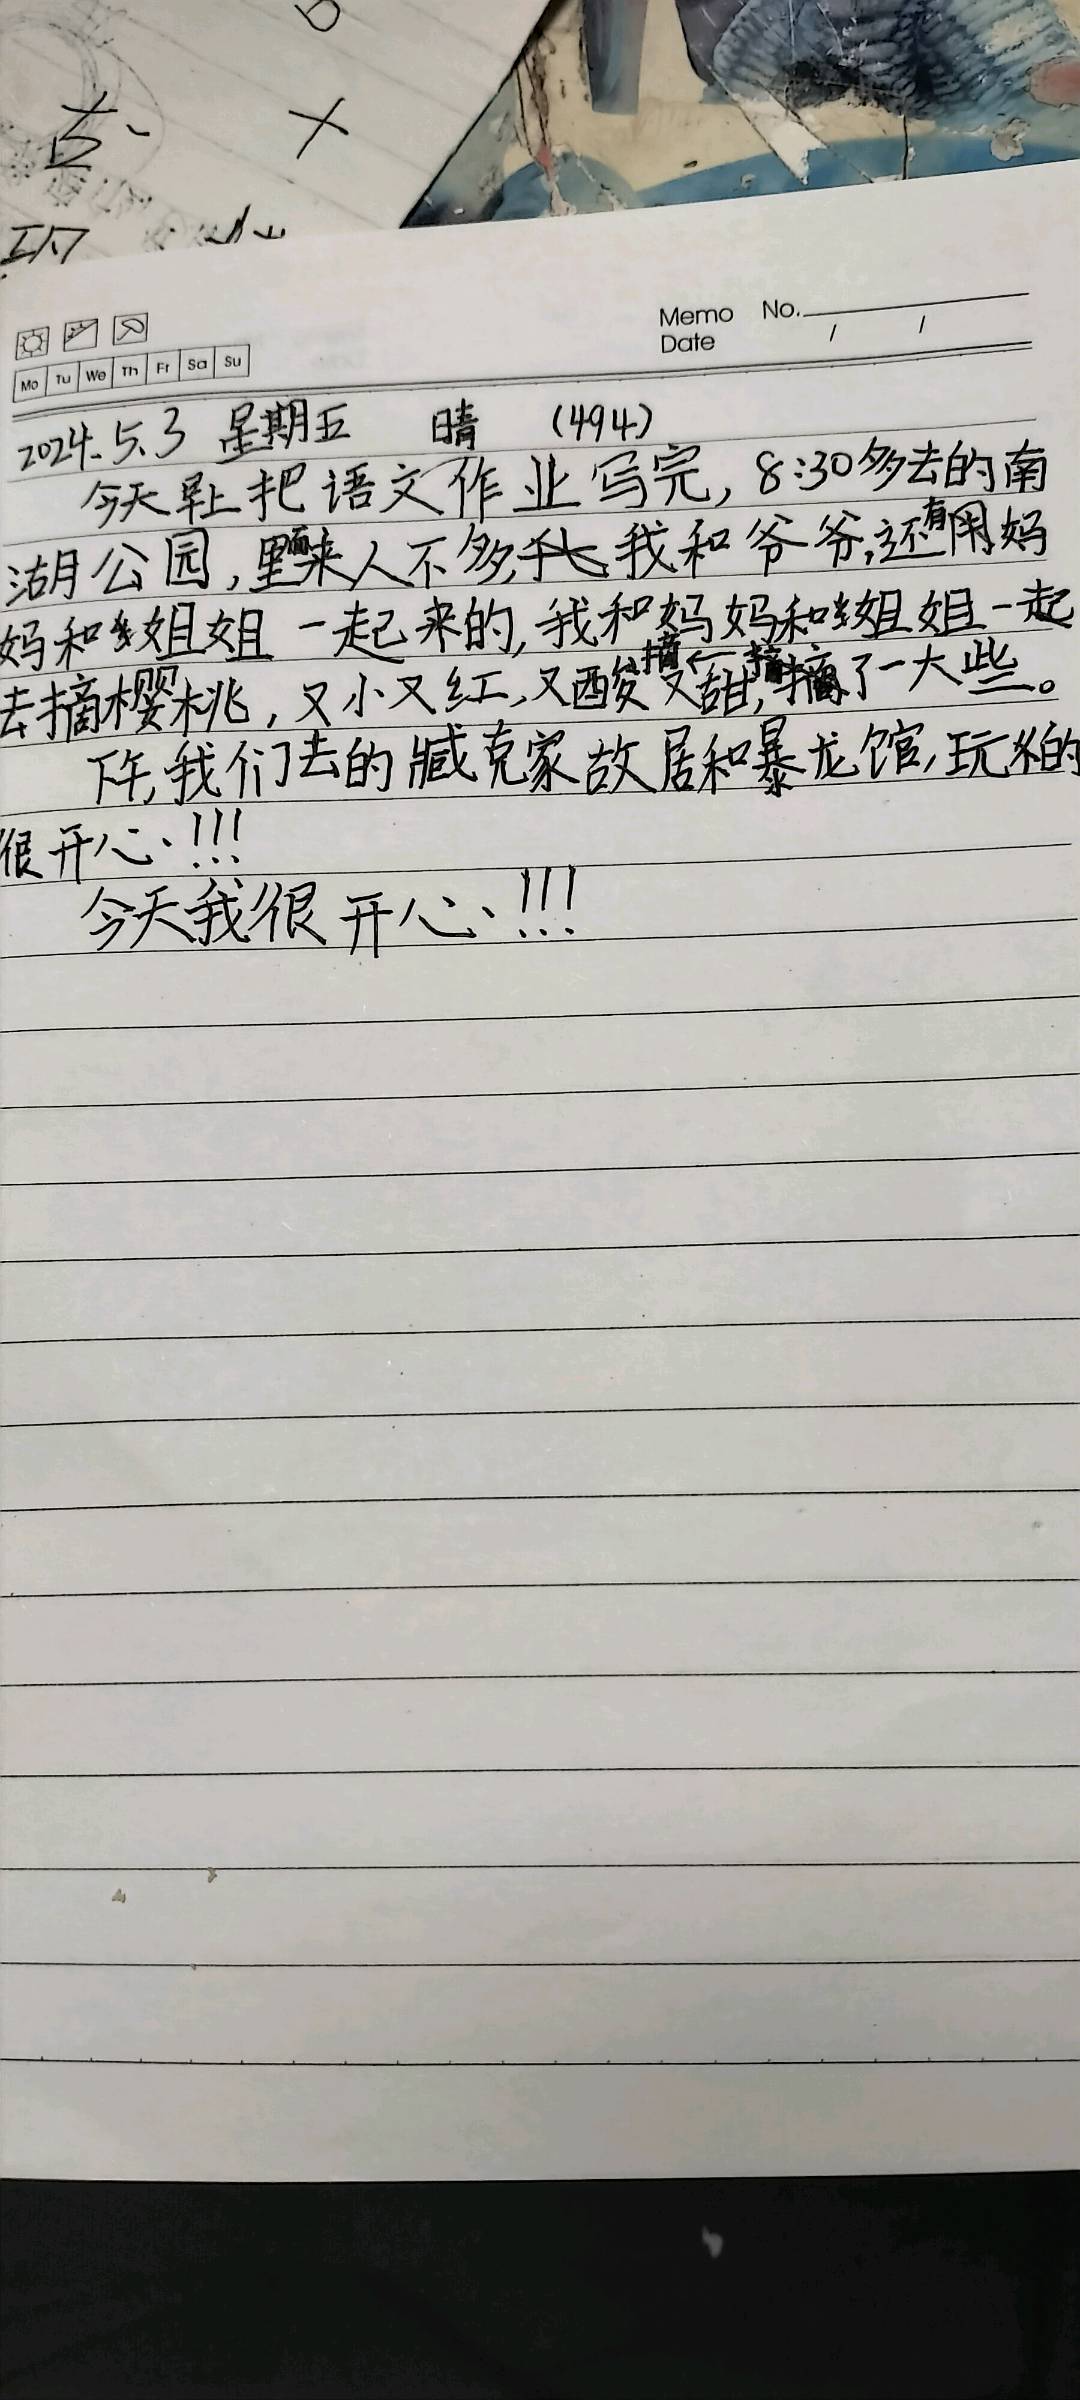 Memo No.
Date / /
Mo Tu We Th Fr Sa Su
2024.5.3 星期五 晴 (494)
今天早上把语文作业写完,8:30多去的南
湖公园,里面来人不多,我和爷爷,还有用妈
妈和姐姐一起来的,我和妈妈和姐姐一起
去摘樱桃,又小又红,又酸又甜,摘了一大些。
下午,我们去的臧克家故居和暴龙馆,玩的
很开心!!!
今天我很开心!!!